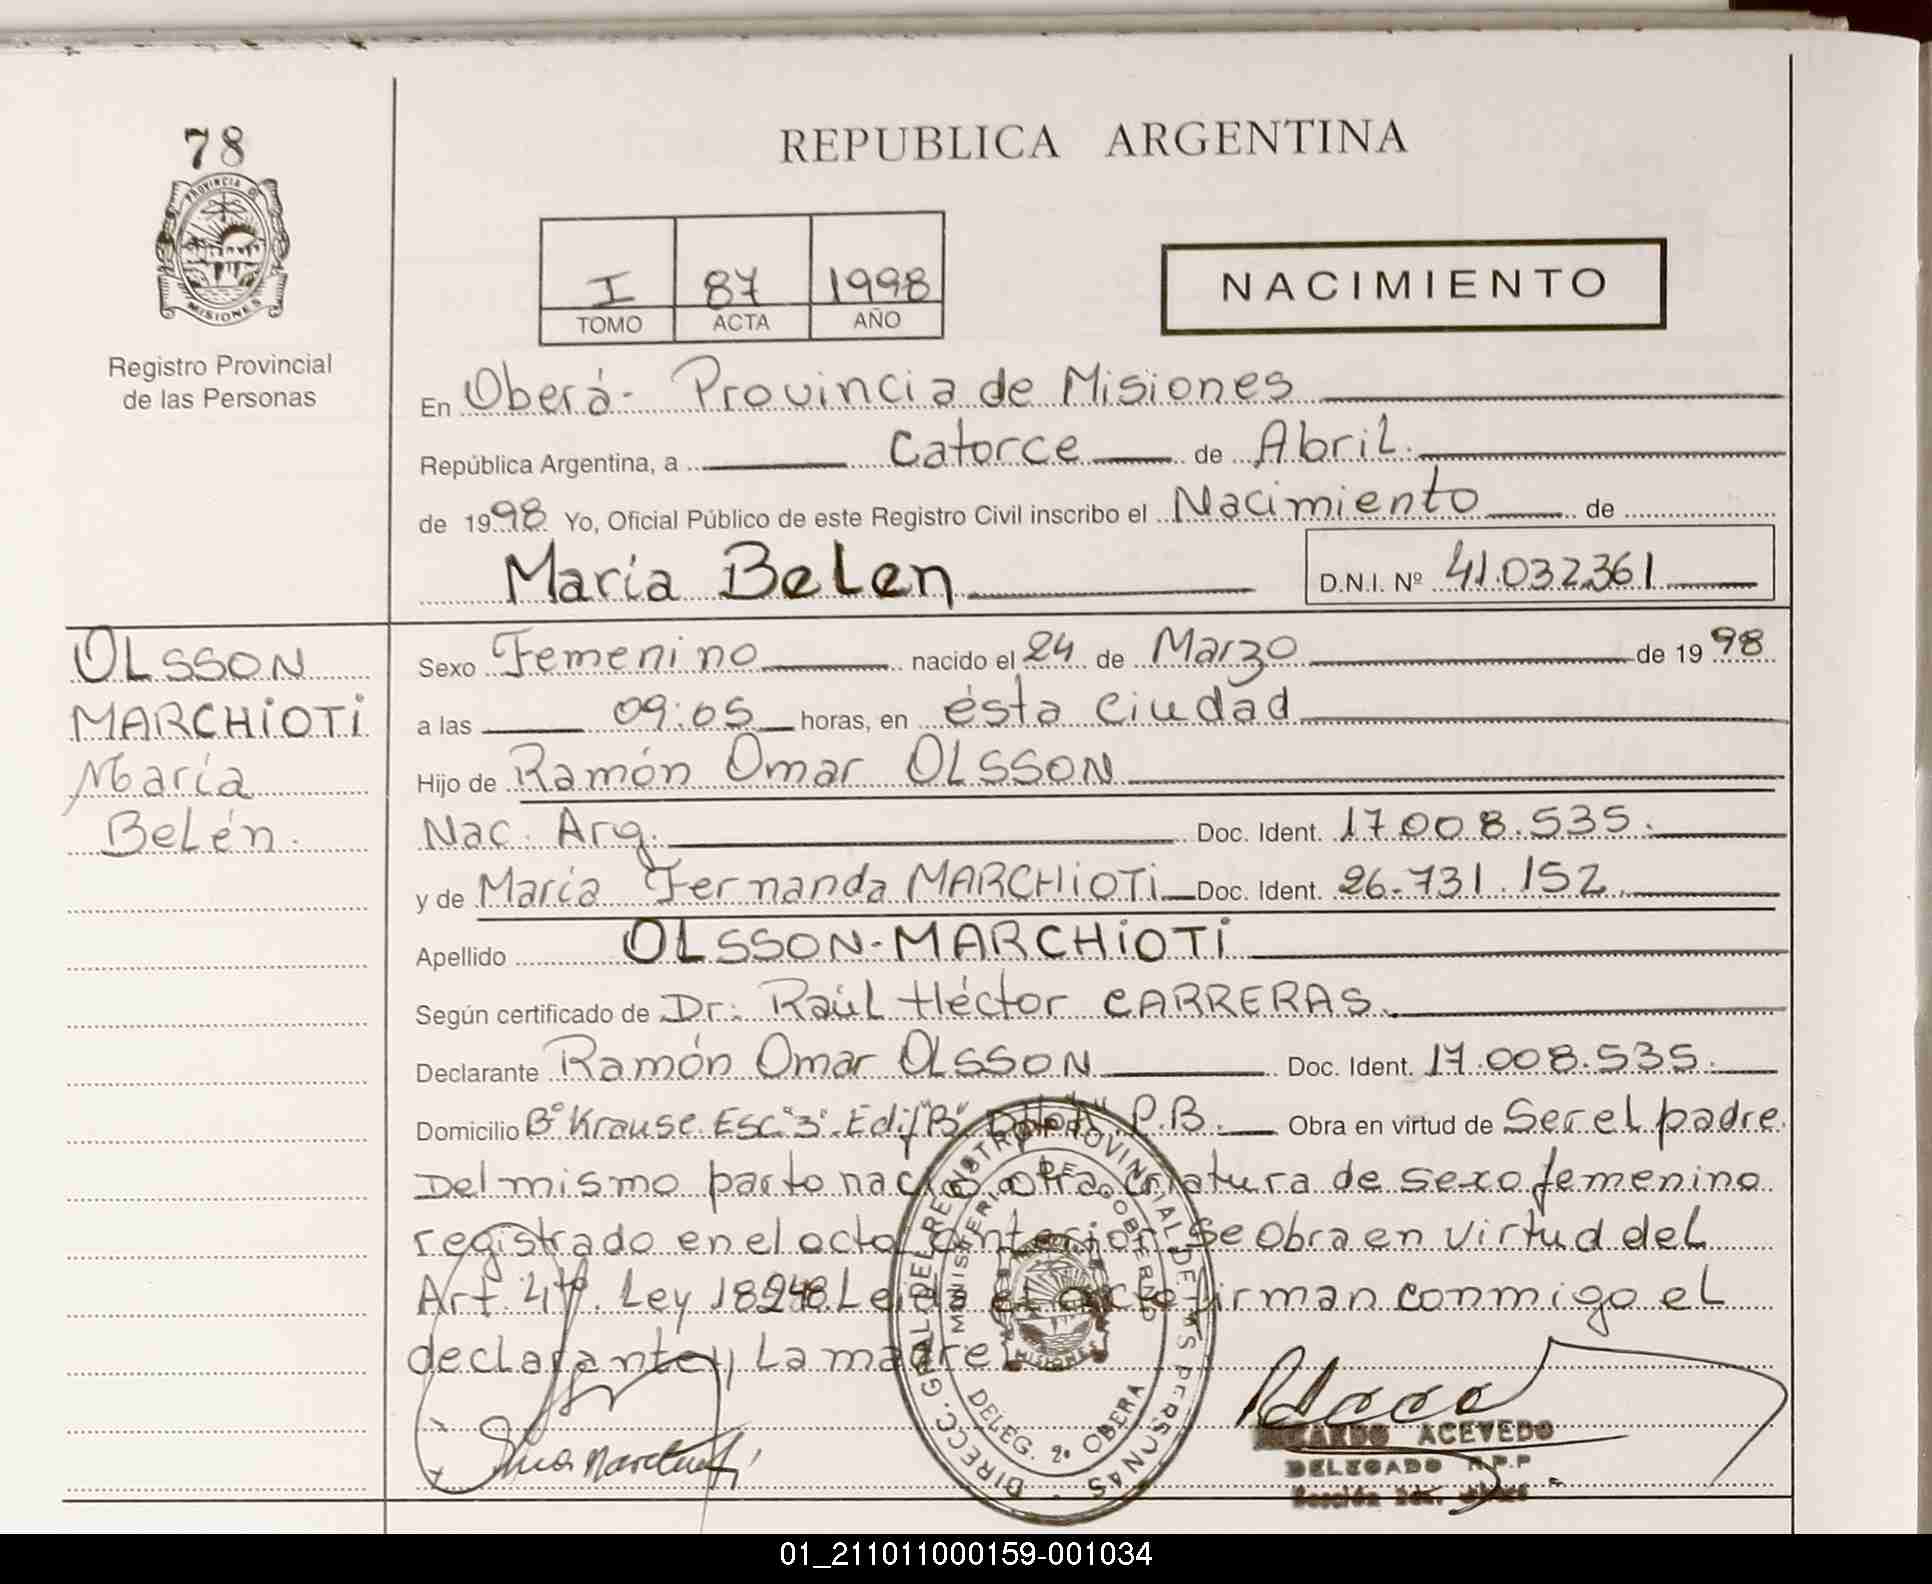 78
PROVINCIA DE
MISIONES
Registro Provincial
de las Personas
REPUBLICA ARGENTINA
I 87 1998
TOMO ACTA AÑO
NACIMIENTO
En Oberá - Provincia de Misiones
República Argentina, a Catorce de Abril.
de 1998 Yo, Oficial Público de este Registro Civil inscribo el Nacimiento de
María Belen D.N.I. Nº 41.032.361
OLSSON
MARCHiOTi
María
Belén.
Sexo Femenino nacido el 24 de Marzo de 1998
a las 09:05 horas, en ésta Ciudad
Hijo de Ramón Omar OLSSON
Nac. Arg. Doc. Ident. 17.008.535.
y de María Fernanda MARCHiOTi Doc. Ident. 26.731.152.
Apellido OLSSON-MARCHiOTi
Según certificado de Dr: Raúl Héctor CARRERAS.
Declarante Ramón Omar OLSSON Doc. Ident. 17.008.535.
Domicilio Bº Krause. Esc."3". Edif "B" P.B. Obra en virtud de Ser el padre.
Del mismo parto nació otra criatura de sexo femenino
registrado en el acta anterior. Se obra en virtud del
Art. 4to. Ley 18248. Leída el acta firman conmigo el
declarante y La madre.
DIRECC. GRAL DEL REGISTRO PROVINCIAL DE LAS PERSONAS
MINISTERIO DE GOBIERNO
MISIONES
DELEG. 2º OBERA
ACEVEDO
DELEGADO R.P.P
01_211011000159-001034